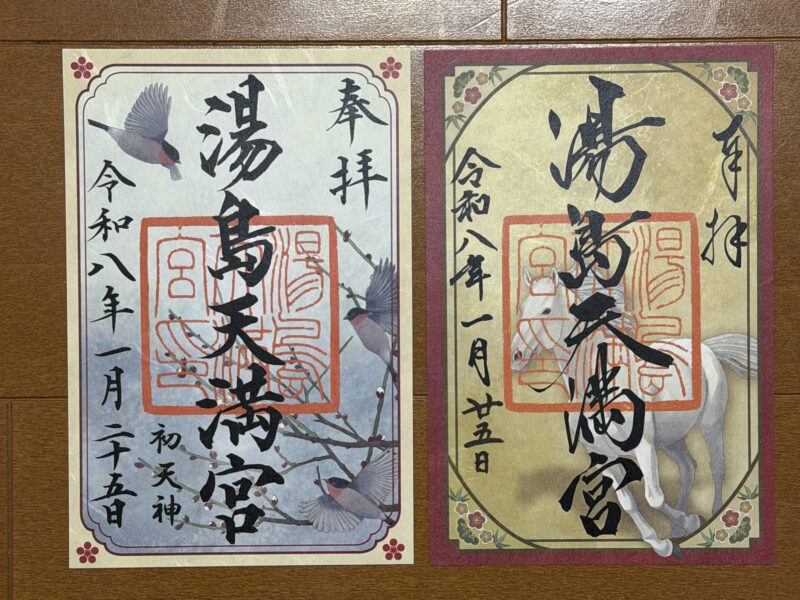 奉拝
湯島天満宮
初天神
令和八年一月二十五日
奉拝
湯島天満宮
令和八年一月廿五日